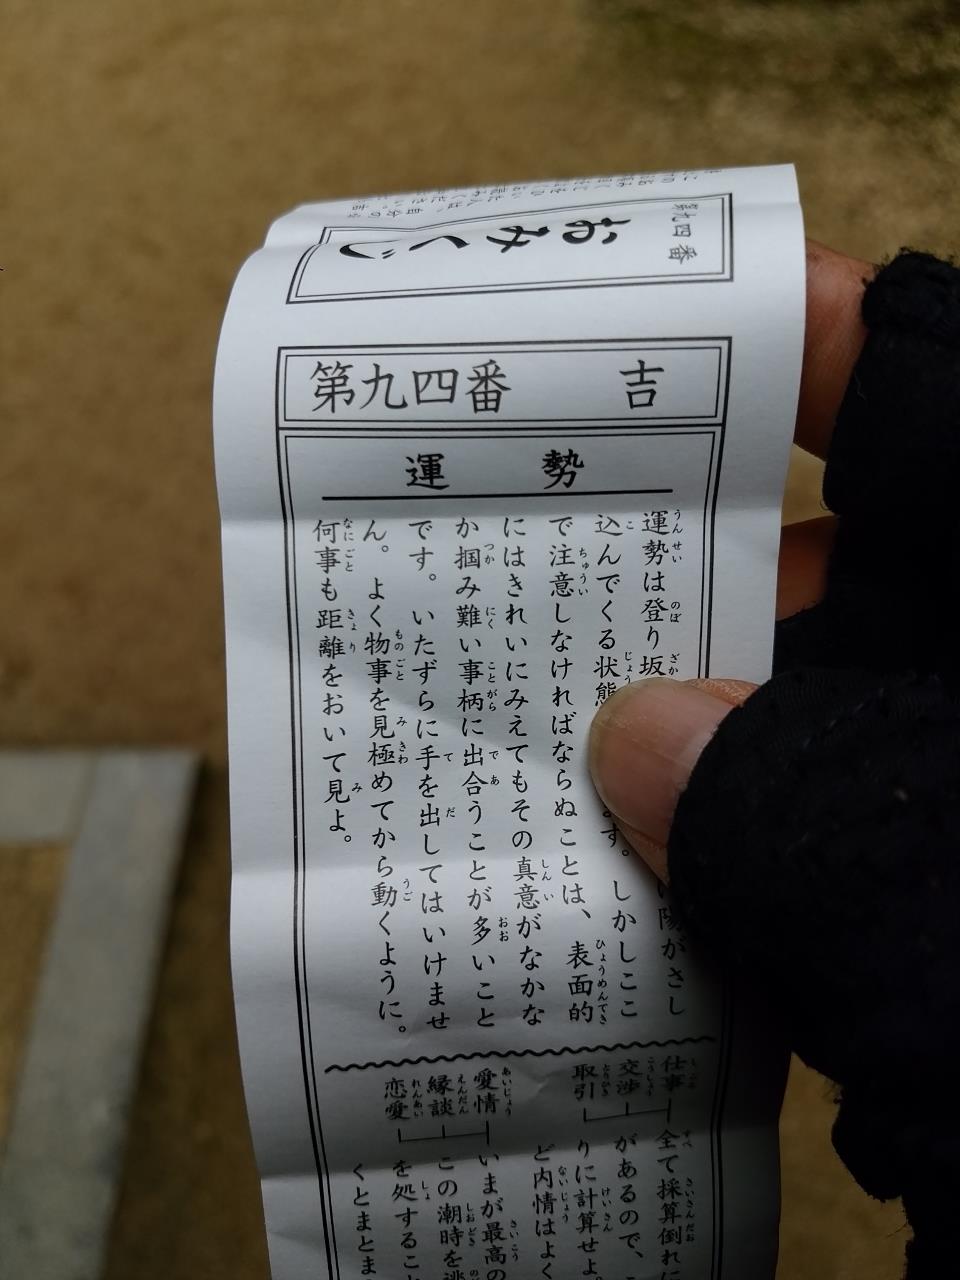 第九四番
おみくじ
第九四番　吉
運勢
運勢は登り坂
い陽がさし
込んでくる状態
ます。しかしここ
で注意しなければならぬことは、表面的
にはきれいにみえてもその真意がなかな
か掴み難い事柄に出合うことが多いこと
です。いたずらに手を出してはいけませ
ん。よく物事を見極めてから動くように。
何事も距離をおいて見よ。
仕事
交渉
取引
全て採算倒れに
があるので、
りに計算せよ。
ど内情はよく
愛情
縁談
恋愛
いまが最高の
この潮時を逃
を処すること
くとまとま